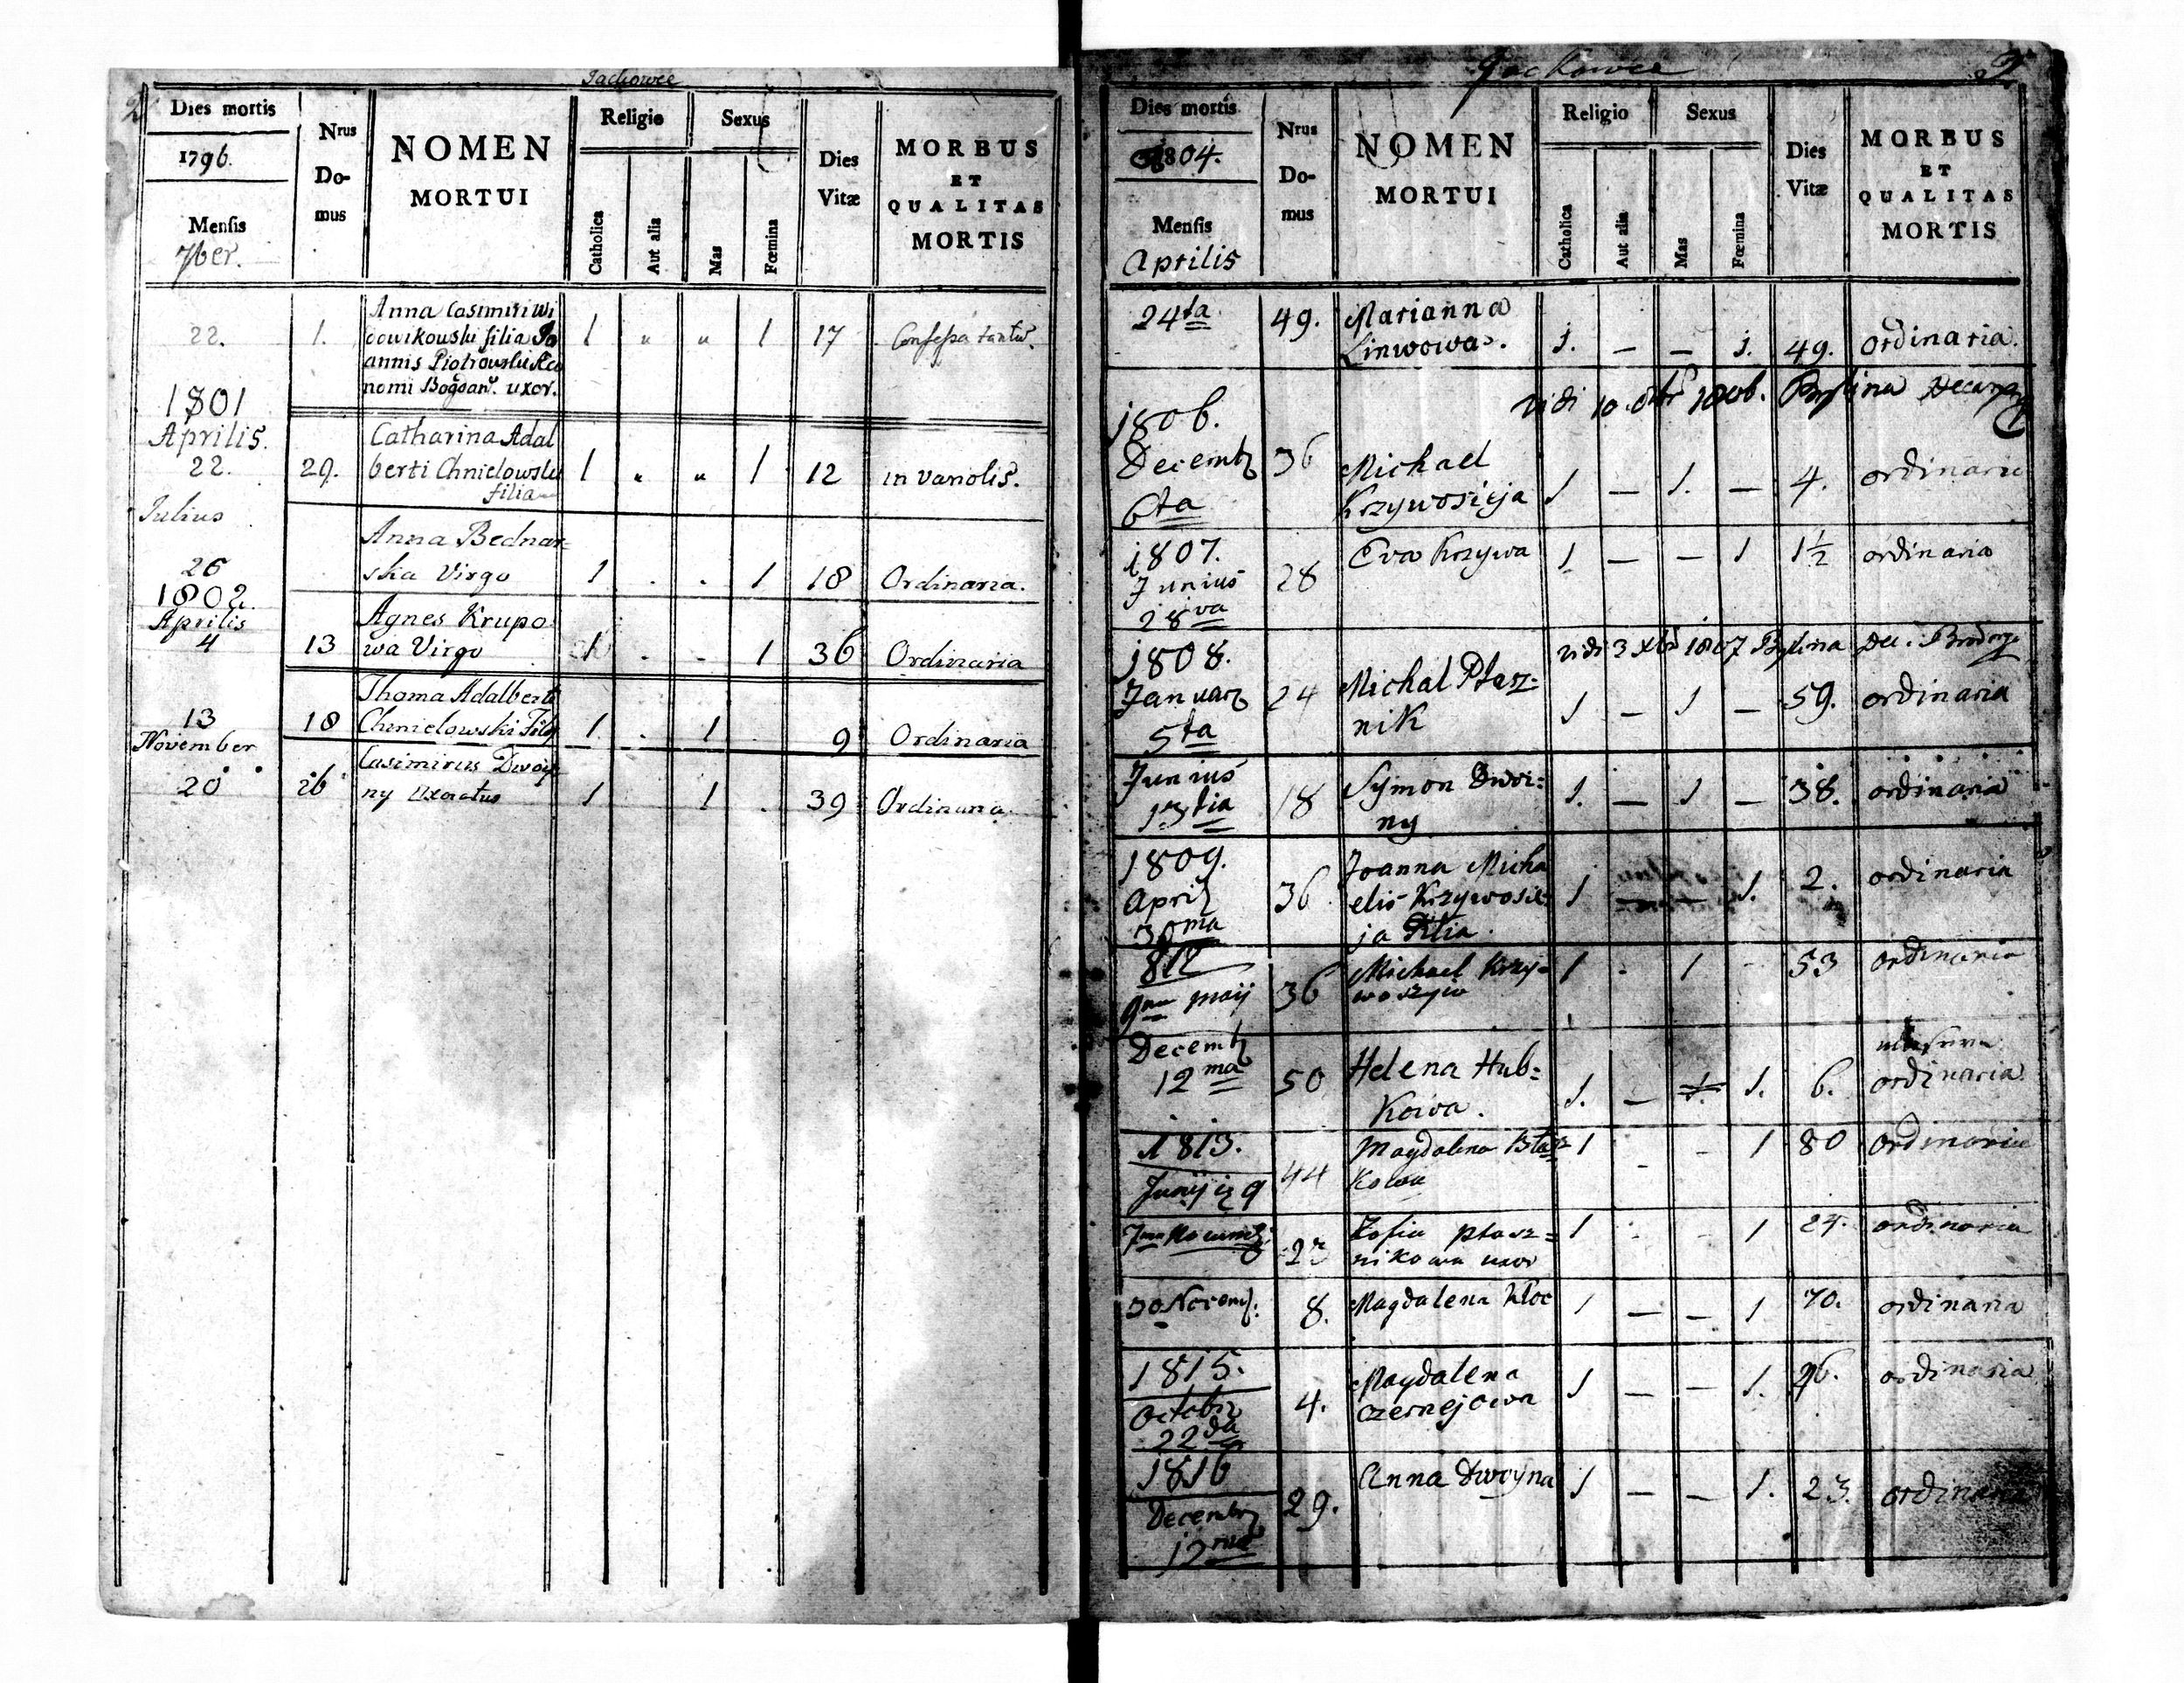 Jackowce
2
Dies mortis
1796.
Mensis
7ber.
Nrus
Do-
mus
NOMEN
MORTUI
Religio
Catholica
Aut alia
Sexus
Mas
Fœmina
Dies
Vitæ
MORBUS
ET
QUALITAS
MORTIS
22. 1. Anna Casimiri Wi
dowikowski filia Jo
annis Piotrowski Aeco
nomi Bogdan. uxor. 1 " " 1 17 Confessa tantu.
1801
Aprilis.
22. 29. Catharina Adal
berti Chmielowski
filia 1 " " 1 12 in variolis.
Julius
26 Anna Bednar=
ska Virgo 1 . . 1 18 Ordinaria.
1802.
Aprilis
4 13 Agnes Krupo
wa Virgo 1 . - 1 36 Ordinaria
13 18 Thoma Adalberti
Chmielowski Filij 1 . 1 . 9 Ordinaria
November
20 26 Casimirus Dwoy
ny Uxoratus 1 1 . 39 Ordinaria
Jackowce
2
Dies mortis
1804.
Mensis
Aprilis
Nrus
Do-
mus
NOMEN
MORTUI
Religio
Catholica
Aut alia
Sexus
Mas
Fœmina
Dies
Vitæ
MORBUS
ET
QUALITAS
MORTIS
24ta 49. Marianna
Linwowa. 1. — — 1. 49. ordinaria.
Vidi 10. 1806. Bylina Decanus
1806.
Decemb
6ta 36 Michael
Krzywosieja 1 — 1. — 4. ordinaria
1807.
Junius
28va 28 Eva Krzywa 1 — — 1 1½ ordinaria
vidi 3 Xbr 1807 Bylina Dec.
1808.
Januar
5ta 24 Michal Ptasz=
nik 1 — 1 — 59. ordinaria
Junius
13tia 18 Symon Dwoi=
ny 1. — 1 — 38. ordinaria
1809.
April
30ma 36 Joanna Micha
elis Krzywosie=
ja Filia. 1 — — 1. 2. ordinaria
812
9na maij 36 Michael Krzy=
woszyia 1 - 1 - 53 ordinaria
Decemb
12ma 50 Helena Hub=
kowa. 1. — 1. 1. 6. ordinaria
1813.
Junij 9 44 Magdalena
kowa 1 - - 1 80 ordinaria
23 Zofia Ptasz=
nikowa uxor 1 - - 1 24. ordinaria
30 Novemb: 8. Magdalena Kloc 1 — — 1 70. ordinaria
1815.
Octobr
22da 4. Magdalena
Czernejowa 1 — — 1. 26. ordinaria
1816
Decembr
12ma 29. Anna Dwoyna 1 — — 1. 23. ordinaria